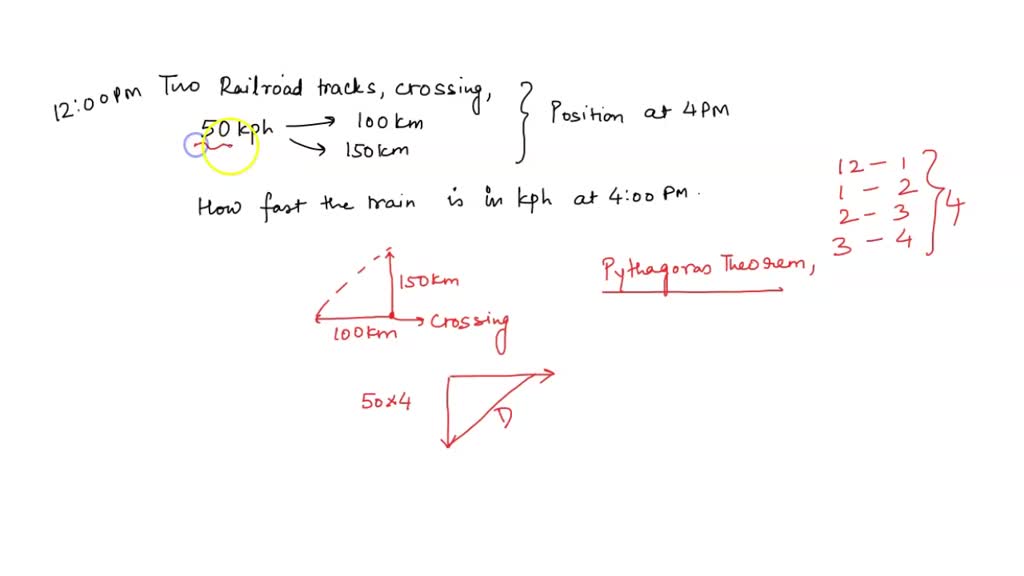 12:00PM Two Railroad tracks, crossing,
50 kph → 100 km
→ 150 km
Position at 4 PM
How fast the train is in kph at 4:00 PM.
12 – 1
1 – 2
2 – 3
3 – 4
4
Pythagoras Theorem,
150 km
100 km
crossing
50×4
D